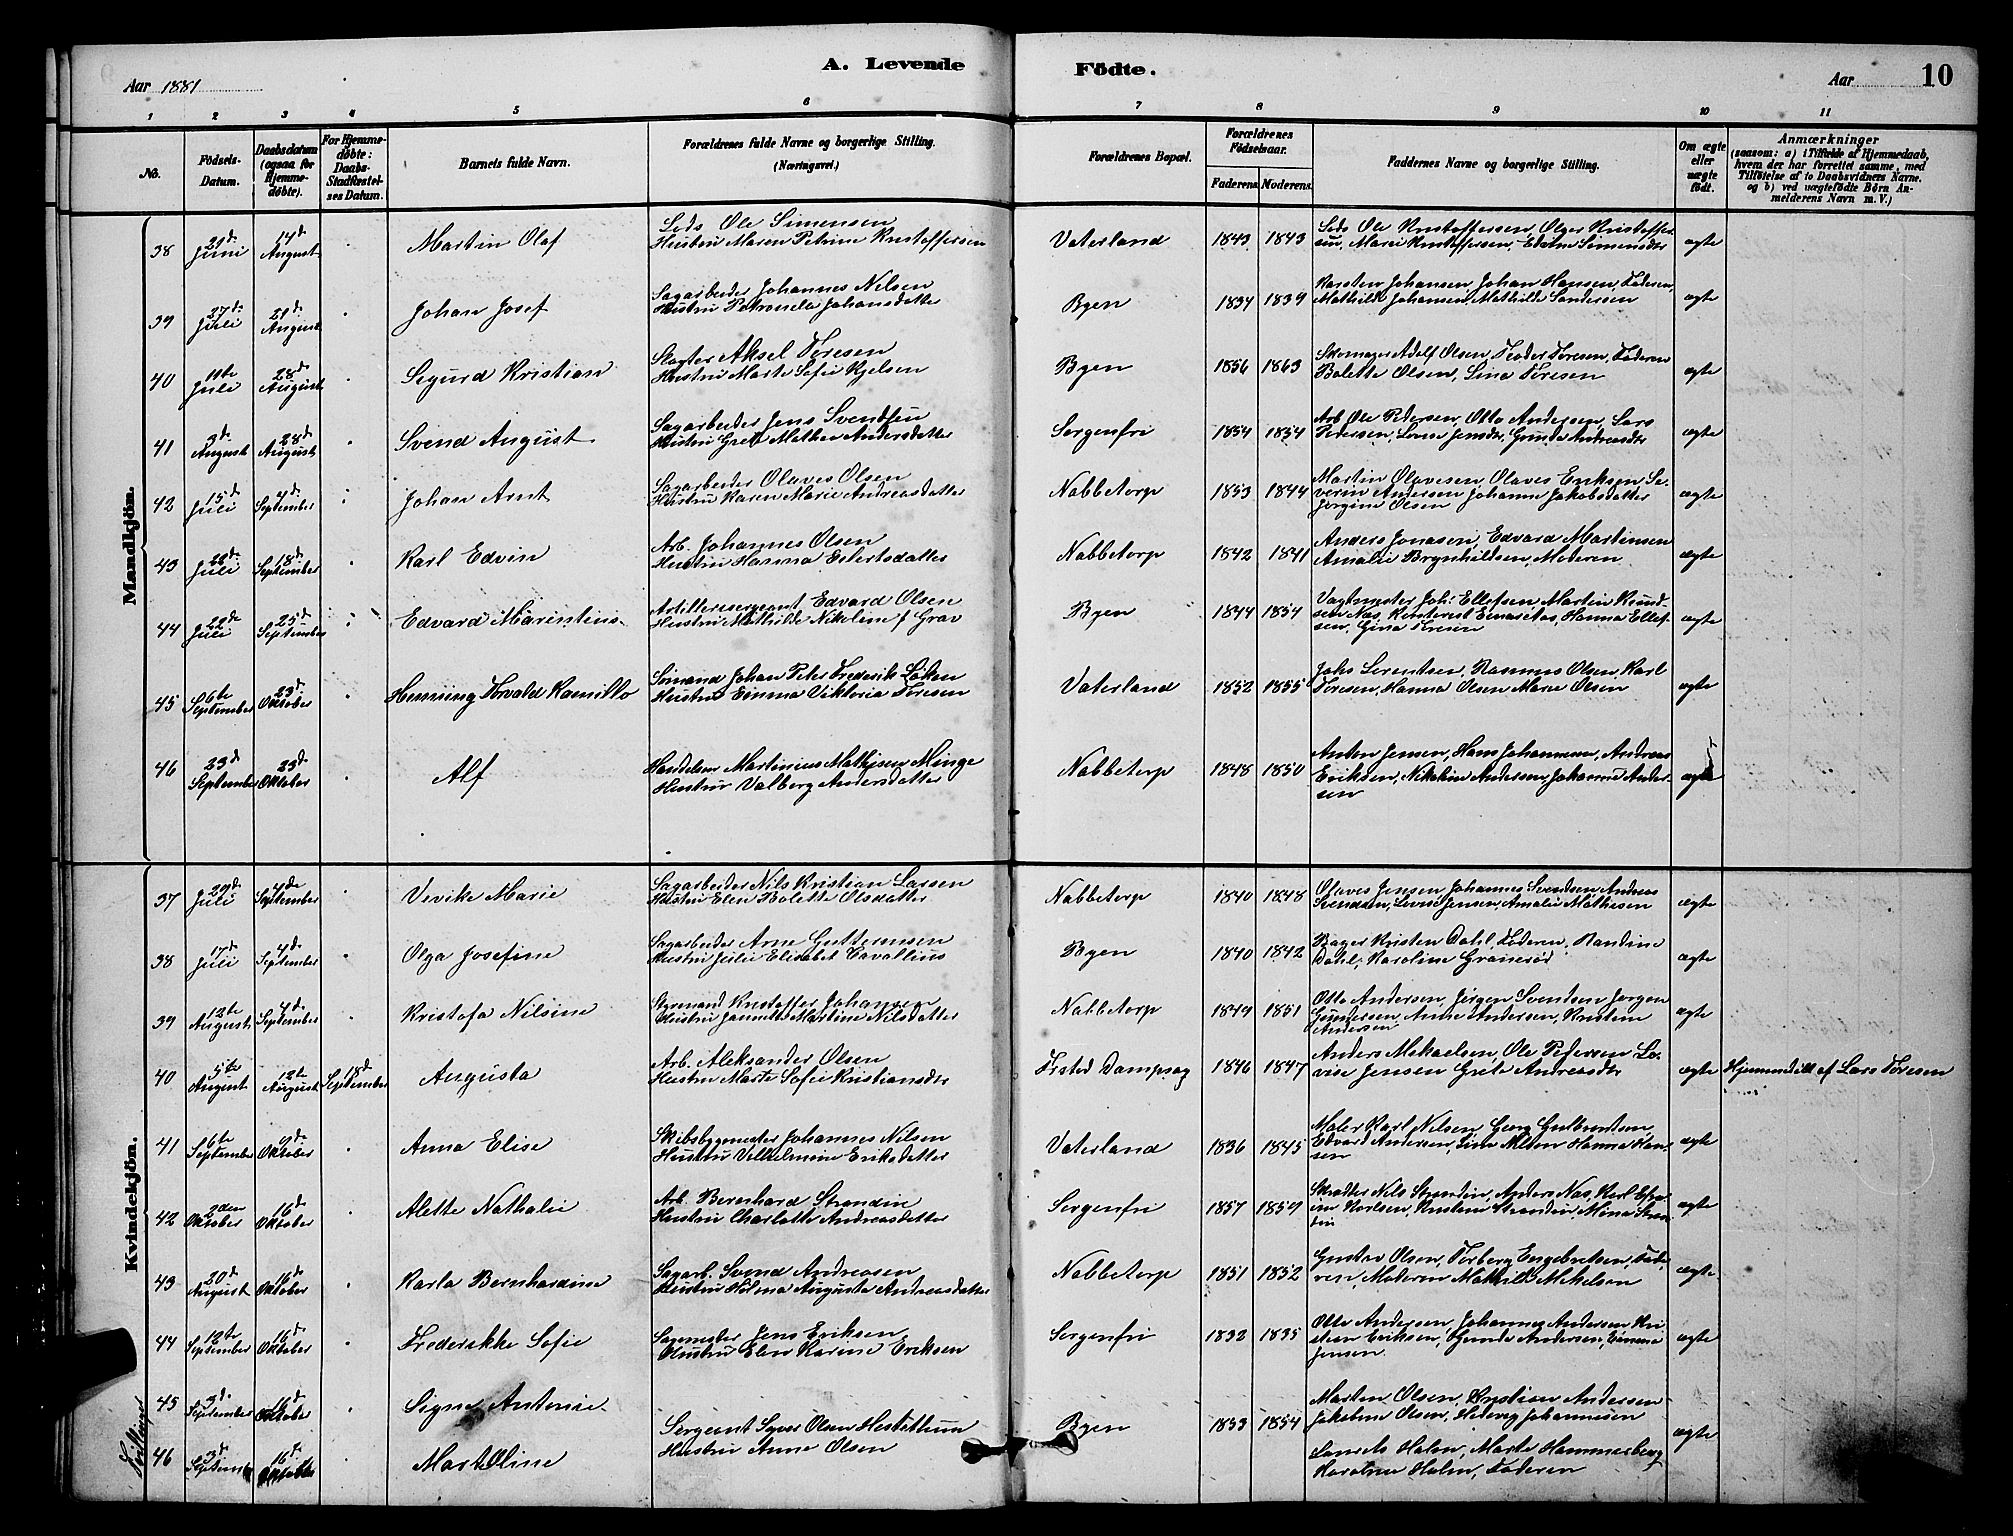 A. Levende Födte.
Aar 1881
Aar
10
1 2 3 4 5 6 7 8 9 10 11
No.
Födsels-Datum.
Daabsdatum (ogsaa for Hjemmedöbte).
For Hjemmedöbte: Daabs-Stadfæstelses Datum.
Barnets fulde Navn.
Forældrenes fulde Navne og borgerlige Stilling. (Næringsvei.)
Forældrenes Bopæl.
Forældrenes Födselsaar.
Faderens. Moderens.
Faddernes Navne og borgerlige Stilling.
Om ægte eller uægte födt.
Anmærkninger
(saasom: a) i Tilfælde af Hjemmedaab, hvem der har forrettet samme, med Tilföielse af to Daabsvidners Navne. og b) ved uægtefödte Börn Anmelderens Navn m. V.)
Mandkjön.
38 21d Juni 14d August Martin Olaf
Leds Ole Simensen
Hustru Maren Petrine Kristoffersen
Vaterland 1843 1843
Leds Ole Kristoffersen, Olger Kristoffersen, Marie Kristoffersen, Edvine Simensdtr
ægte
39 27d Juli 21d August Johan Josef
Sagarbeider Johannes Nilsen
Hustru Petronela Johansdatter
Byen 1834 1839
Karsten Johansen, Johan Hansen, Faderen,
Mathilde Johansen, Mathilde Sandersen
ægte
40 11te Juli 28d August Sigurd Kristian
Slagter Aksel Toresen
Hustru Marte Sofie Kjelsen
Byen 1856 1863
Skomager Adolf Olsen, Teodor Toresen, Faderen
Bolette Olsen, Lina Toresen
ægte
41 3d August 28d August Svend August
Sagarbeider Jens Svendsen
Hustru Grete Mathea Andersdatter
Sorgenfri 1854 1854
Arb. Ole Pedersen, Otto Andersen, Lars
Pedersen, Lovise Jensdtr, Gunda Andreasdtr
ægte
42 15d Juli 4d September Johan Arnt
Sagarbeider Olaves Olsen
Hustru Karen Marie Andreasdatter
Nabbetorp 1853 1844
Martin Olavesen, Olaves Eriksen, Severin Andersen, Johanne Jakobsdatter
Jorgine Olsen
ægte
43 22d Juli 18d September Karl Edvin
Arb. Johannes Olsen
Hustru Hanna Eilertsdatter
Nabbetorp 1842 1841
Anders Jonasen, Edvard Martinsen
Amalie Brynhildsen, Moderen
ægte
44 22d Juli 25d September Edvard Marentius
Artillerisergeant Edvard Olsen
Hustru Mathilde Nikoline f. Grav
Byen 1844 1854
Vagtmester Joh: Ellefsen, Martin Knudsen Næs, Hanna Ellefsen, Gina Toresen
ægte
45 6te September 23d Oktober Henning Torvald Kamillo
Sömand Johan Peter Frederik Löken
Hustru Emma Viktoria Toresen
Vaterland 1852 1855
Johs Lorentsen, Rasmus Olsen, Karl
Toresen, Hanna Olsen, Marie Olsen
ægte
46 23d September 23d Oktober Alf
Handelsm Martinius Mathisen Minge
Hustru Valborg Andersdatter
Nabbetorp 1848 1850
Anton Jensen, Hans Johannesen, Andreas
Eriksen, Nikoline Andersen, Johanne Andersen
ægte
Kvindekjön.
37 29d Juli 4de September Vivike Marie
Sagarbeider Nils Kristian Larsen
Hustru Elen Bolette Olsdatter
Nabbetorp 1840 1848
Olaves Jensen, Johannes Svendsen, Andreas
Svendsen, Lovise Jensen, Amalie Mathisen
ægte
38 17d Juli 4d September Olga Josefine
Sagarbeider Arne Guttormsen
Hustru Julie Elisabet Cavallius
Byen 1840 1842
Bager Kristen Dahl, Faderen, Randine
Dahl, Karoline Granerød
ægte
39 12te August 4d September Kristofa Nilsine
Styrmand Kristoffer Johansen
Hustru Jannette Martine Nilsdatter
Nabbetorp 1849 1851
Otto Andersen, Jörgen Svendsen, Jörgen
Gundersen, Anne Andersen, Kristine
Andersen
ægte
40 5te August 12te August 18d September Augusta
Arb. Aleksander Olsen
Hustru Marte Sofie Kristiansdtr
Frsted Dampsag 1846 1847
Anders Mikaelsen, Ole Pedersen, Lovise Jensen, Grete Andreasdtr
ægte
Hjemmedöbt af Lars Toresen
41 6te September 9d Oktober Anna Elise
Skibsbygmester Johannes Nilsen
Hustru Vilhelmine Eriksdatter
Vaterland 1836 1845
Maler Karl Nilsen, Georg Gulbrandsen,
Edvard Andersen, Lina Nilsen, Hanna Hansen
ægte
42 2den Oktober 16d Oktober Alette Nathalie
Arb. Bernhard Strandin
Hustru Charlotte Andreasdatter
Sorgenfri 1857 1859
Skrædder Nils Strandin, Anders Næs, Karl Efraim Karlsen, Kristine Strandin, Mina Strandin
ægte
43 20d August 16d Oktober Karla Bernhardine
Sagarb. Svend Andreasen
Hustru Hilma Augusta Andreasdatter
Nabbetorp 1851 1852
Gustav Olsen, Torberg Engebretsen, Faderen, Moderen, Mathilde Mikelsen
ægte
44 12te September 16d Oktober Frederikke Sofie
Sagmester Jens Eriksen
Hustru Elen Karine Eriksen
Sorgenfri 1832 1835
Otto Andersen, Johannes Andersen, Kristian Eriksen, Gunda Andersen, Emma
Jensen
ægte
Tvillinger
45 3d September 16d Oktober Signe Antonie
46 3d September 16d Oktober Mart Oline
Sergeant Syver Olsen Hestetthum
Hustru Anne Olsen
Byen 1833 1854
Marten Olsen, Kristian Andersen
Jakobine Olsen, Hedevig Johannesen
Holm, Marte Hammersberg
Holm, Faderen
ægte